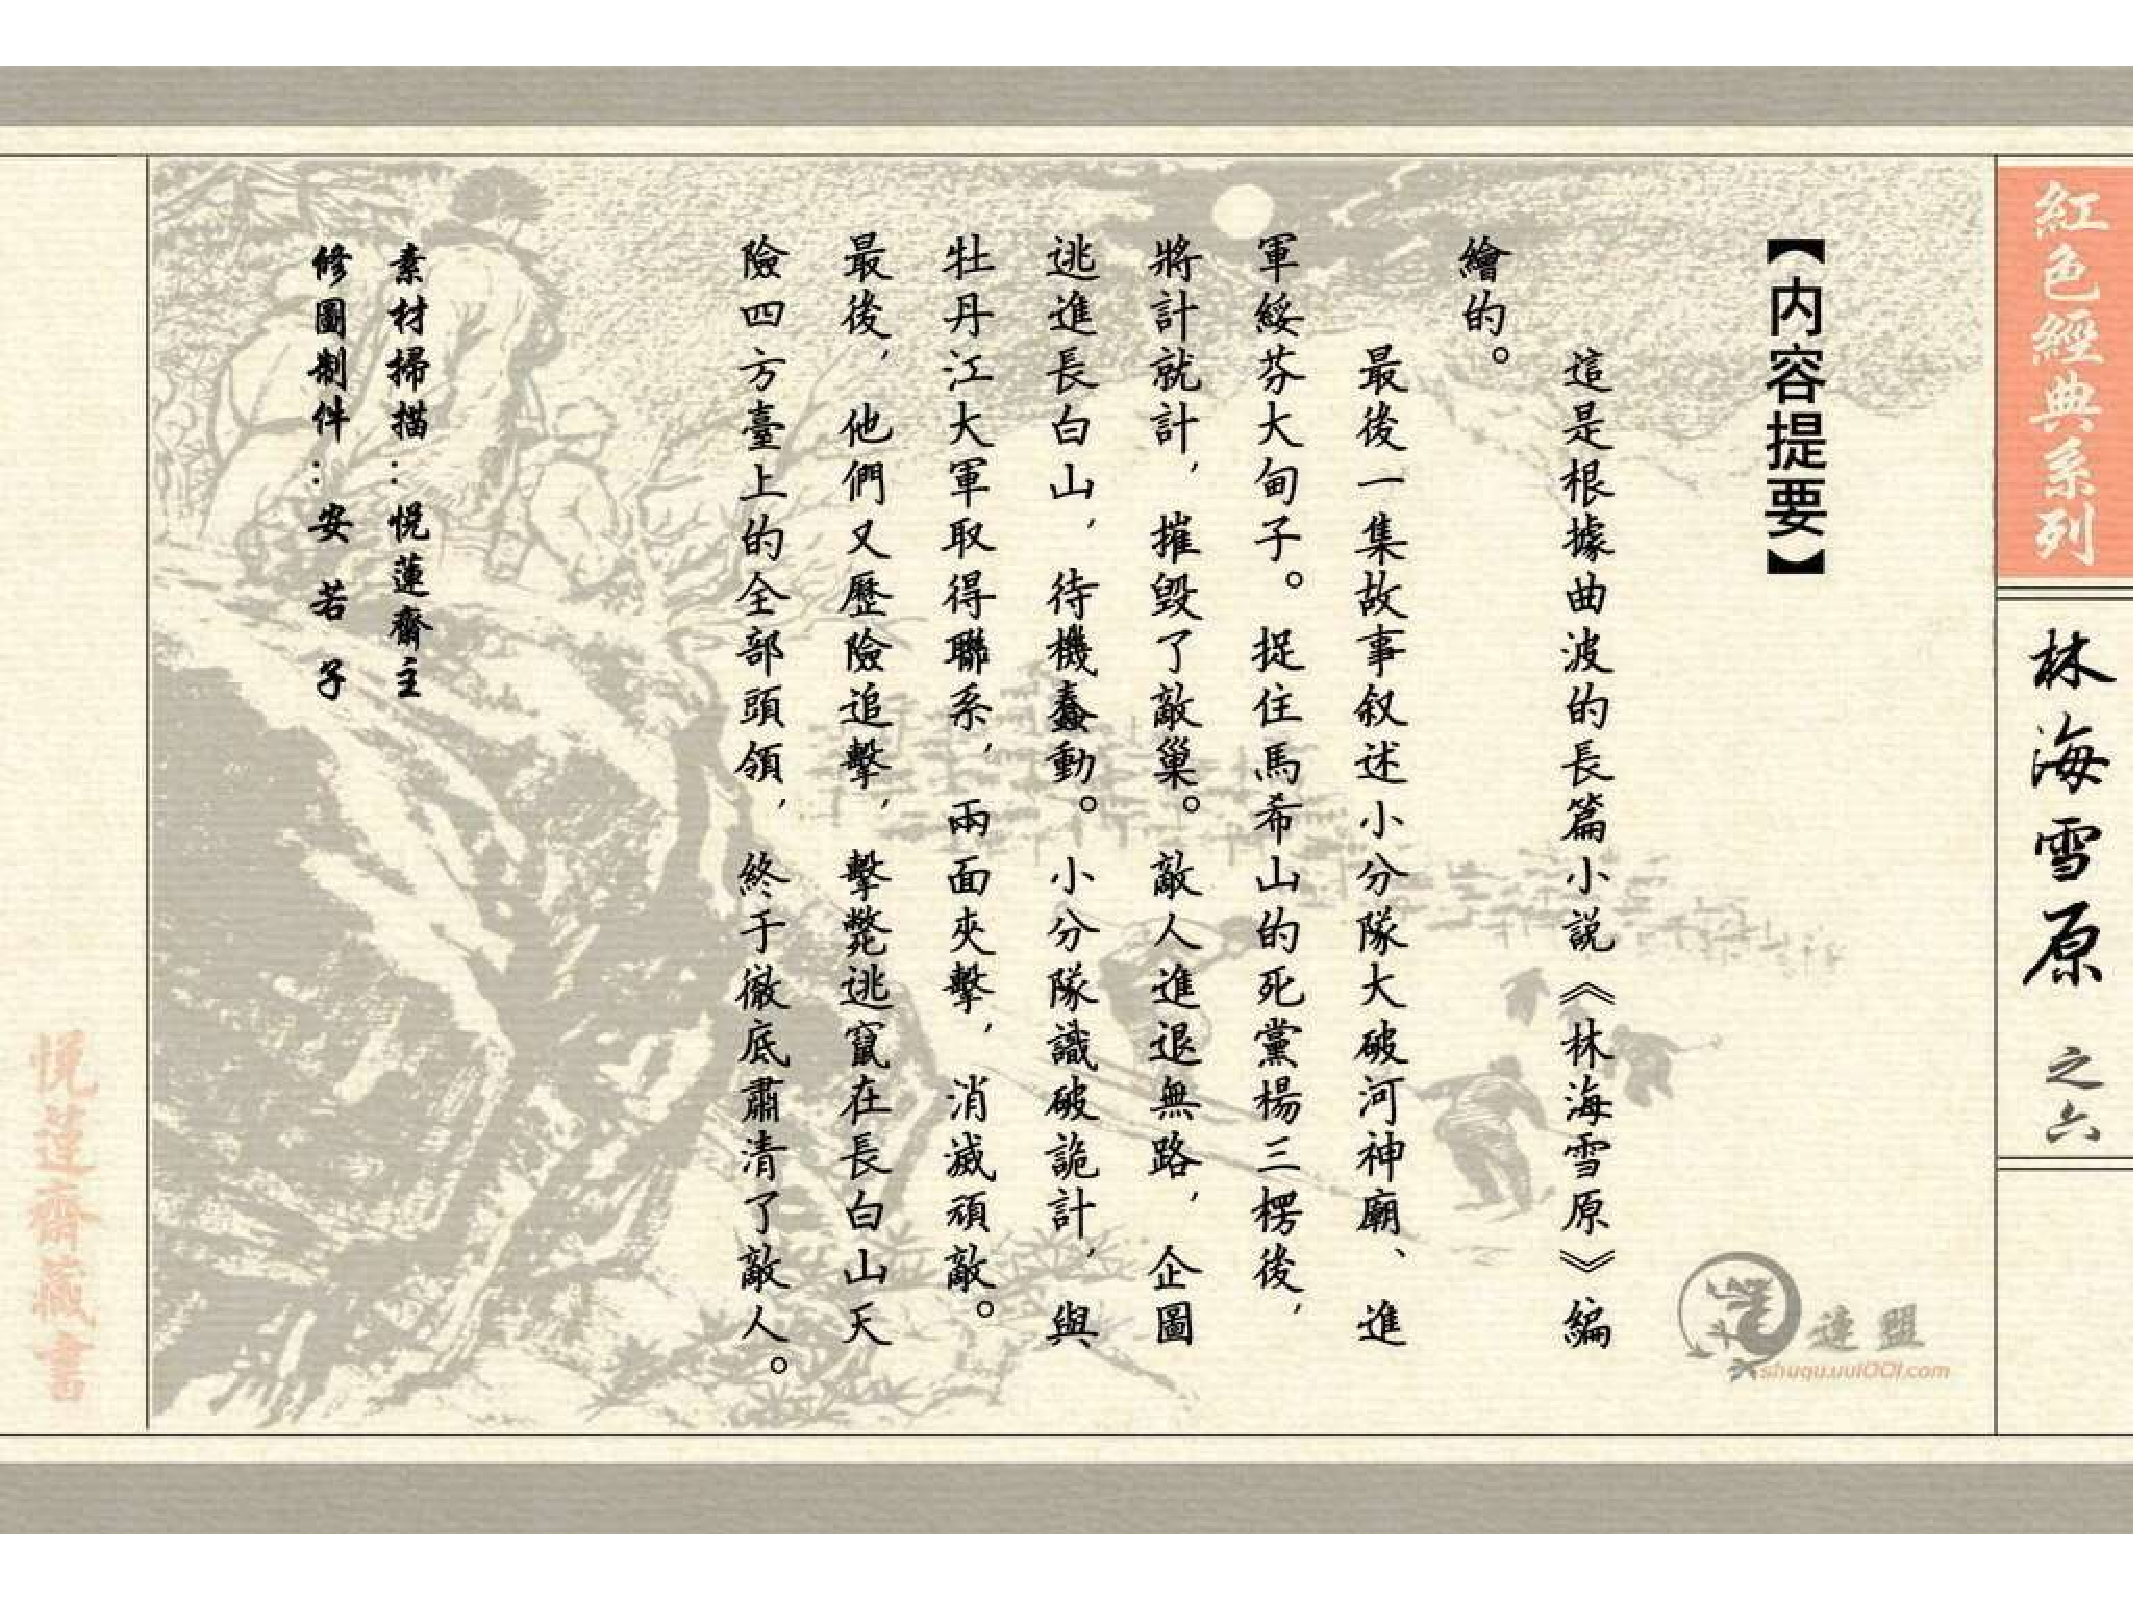 紅色經典系列
林海雪原 之六
【内容提要】
這是根據曲波的長篇小説《林海雪原》編
繪的。
最後一集故事叙述小分隊大破河神廟、進
軍綏芬大甸子。捉住馬希山的死黨楊三楞後，
將計就計，摧毁了敵巢。敵人進退無路，企圖
逃進長白山，待機蠢動。小分隊識破詭計，與
牡丹江大軍取得聯系，兩面夾擊，消滅頑敵。
最後，他們又歷險追擊，擊斃逃竄在長白山天
險四方臺上的全部頭領，終于徹底肅清了敵人。
素材掃描：悦蓮齋主
修圖制件：安若子
連盟
shuqu.uu1001.com
悦蓮齋藏書